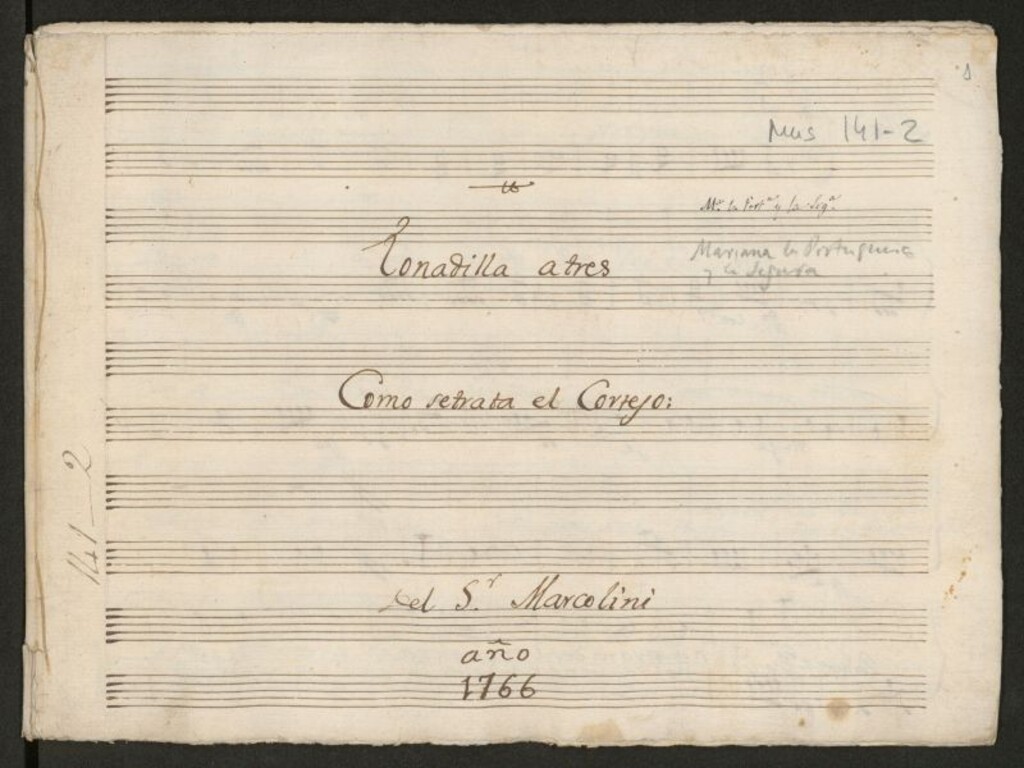 1
Mus 141-2
Mª. la Portª y la Segª.
Mariana la Portuguesa
y la Segura
Tonadilla a tres
Como setrata el Cortejo:
141-2
Del S.r Marcolini
año
1766